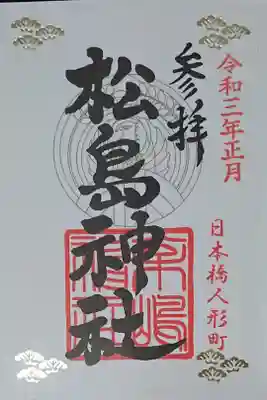 令和三年正月
日本橋人形町
参拝
松島神社